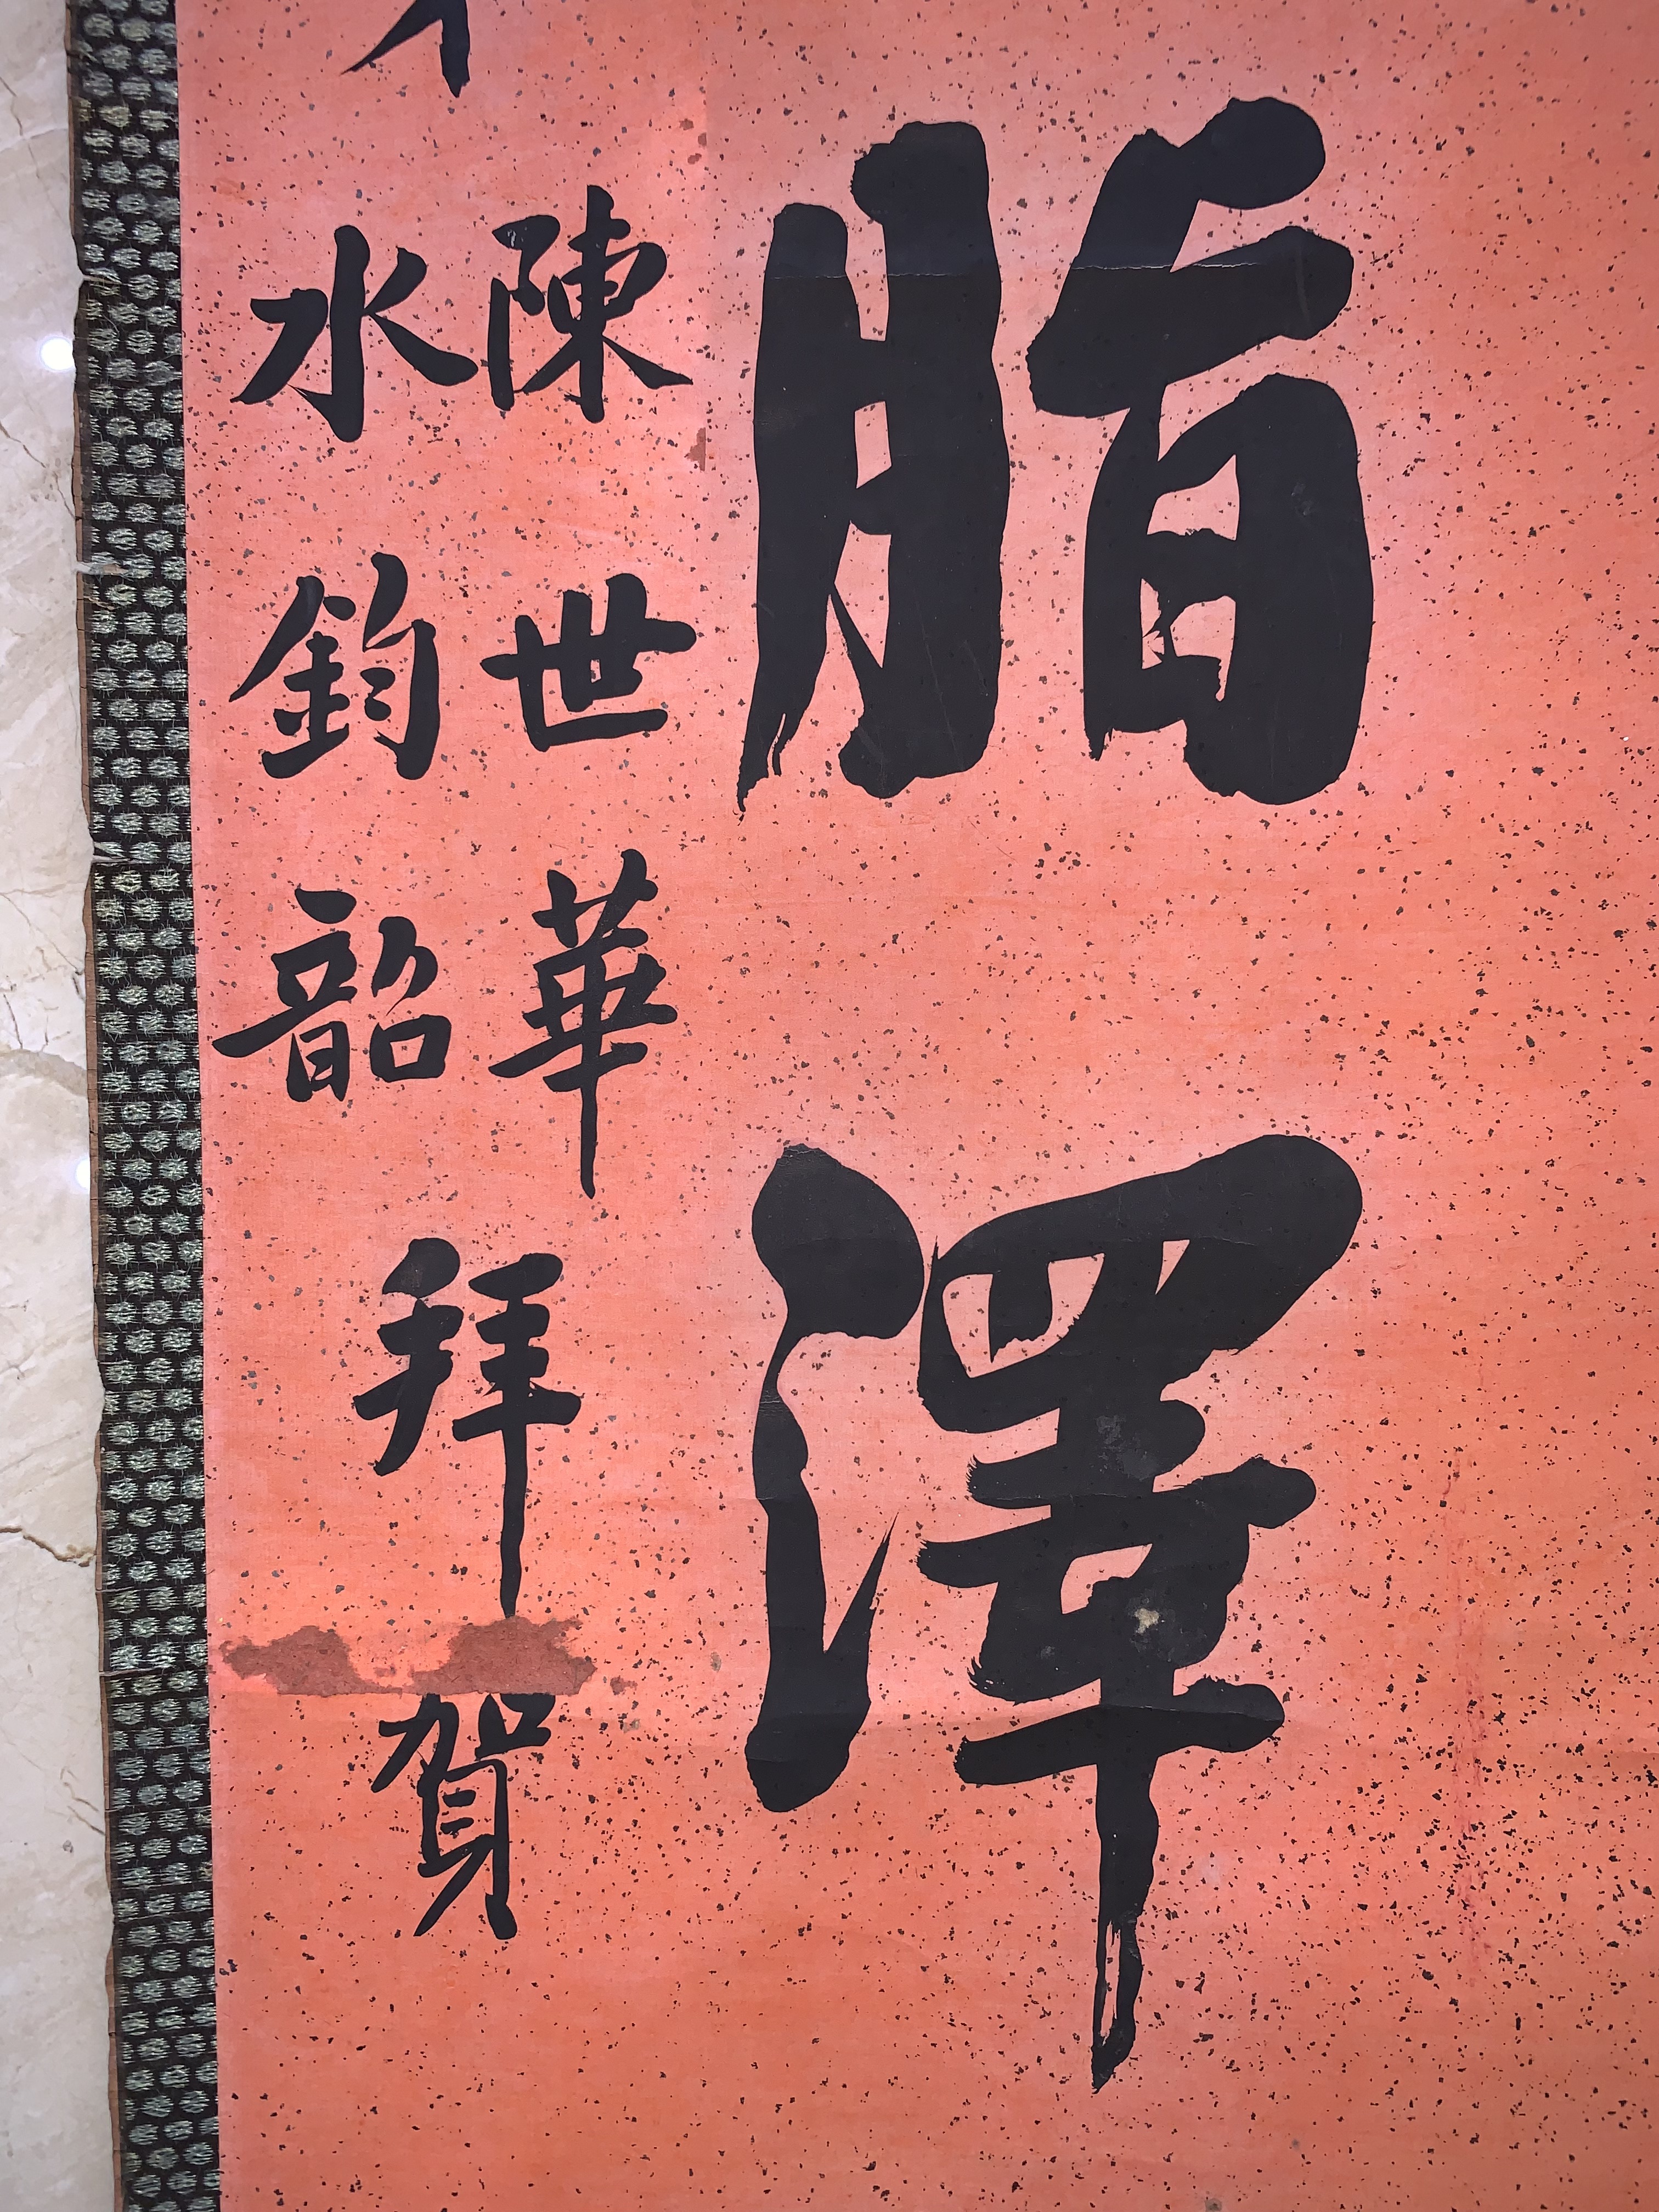 脂澤
陳世華
水鈞韶
拜賀